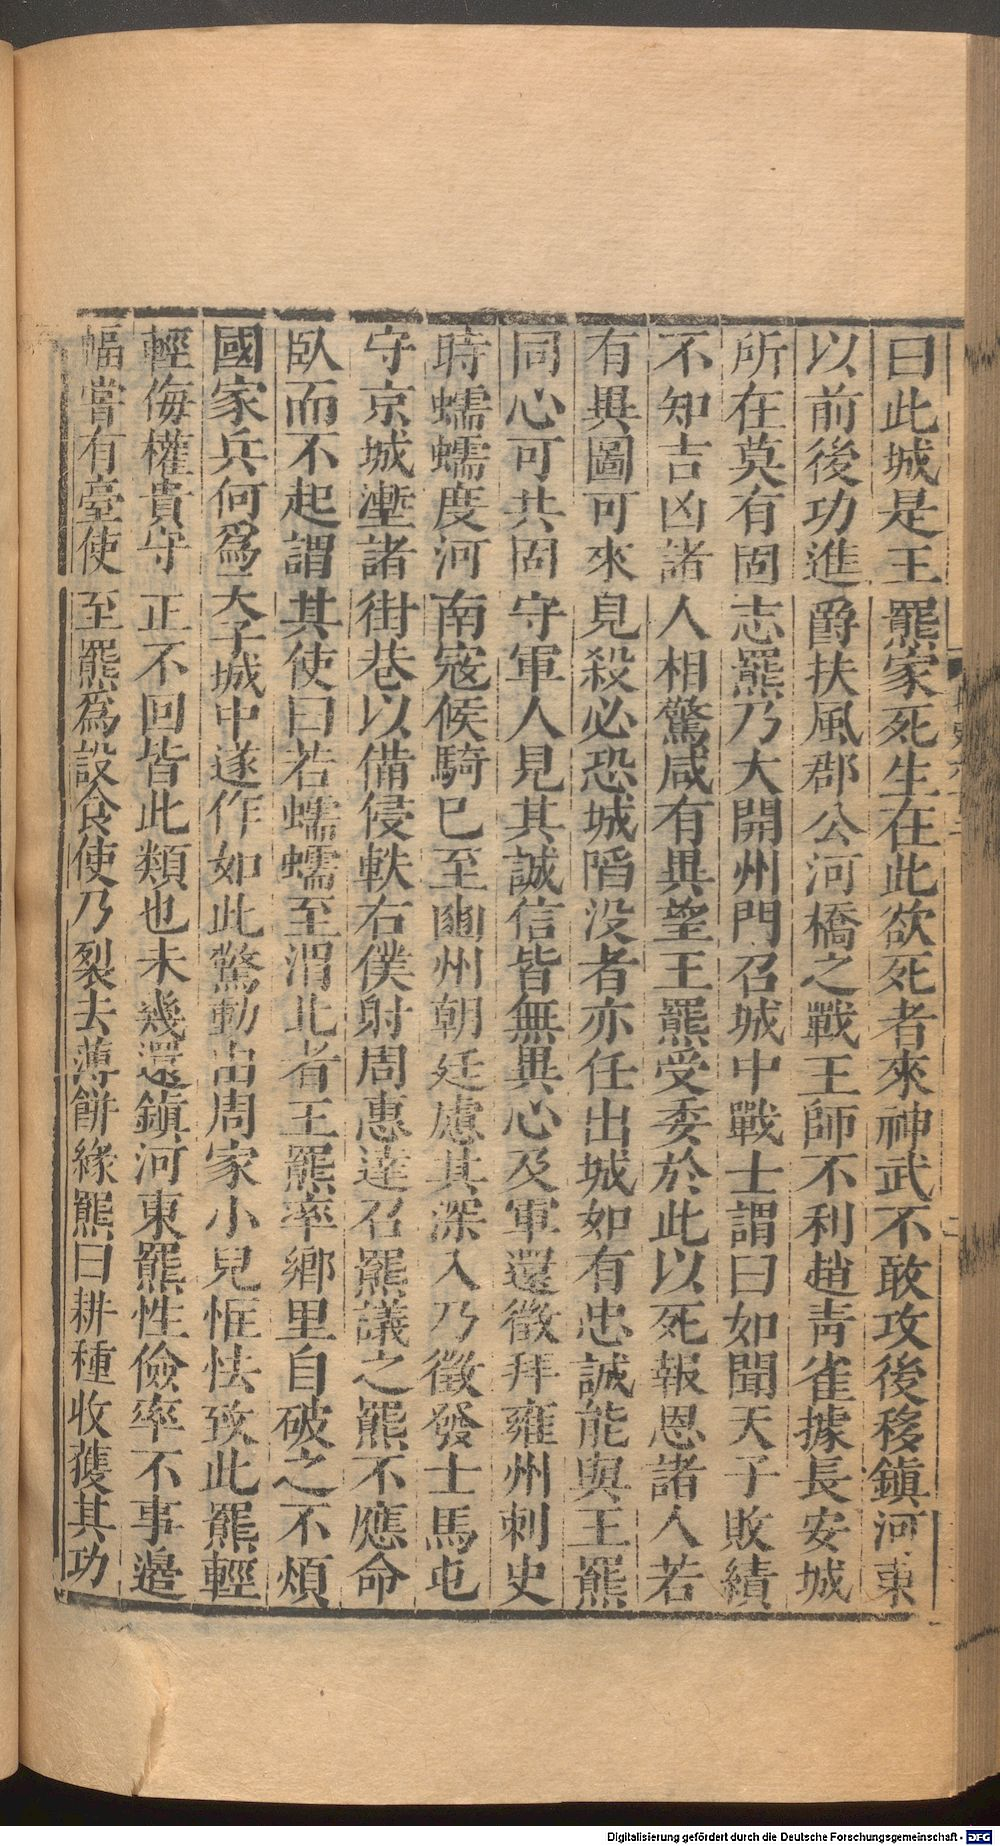 曰此城是王羆家死生在此欲死者來神武不敢攻後移鎭河東
以前後功進爵扶風郡公河橋之戰王師不利趙靑雀據長安城
所在莫有固志羆乃大開州門召城中戰士謂曰如聞天子敗績
不知吉凶諸人相驚咸有異望王羆受委於此以死報恩諸人若
有異圖可來見殺必恐城陷没者亦任出城如有忠誠能與王羆
同心可共固守軍人見其誠信皆無異心及軍還徵拜雍州刺史
時蠕蠕度河南寇候騎已至豳州朝廷慮其深入乃徵發士馬屯
守京城塹諸街巷以備侵軼右僕射周惠達召羆議之羆不應命
臥而不起謂其使曰若蠕蠕至渭北者王羆率鄉里自破之不煩
國家兵何爲天子城中遂作如此驚動由周家小兒恇怯致此羆輕
輕侮權貴守正不回皆此類也未幾還鎭河東羆性儉率不事邉
幅嘗有臺使至羆爲設食使乃裂去薄餅緣羆曰耕種收穫其功
Digitalisierung gefördert durch die Deutsche Forschungsgemeinschaft - DFG